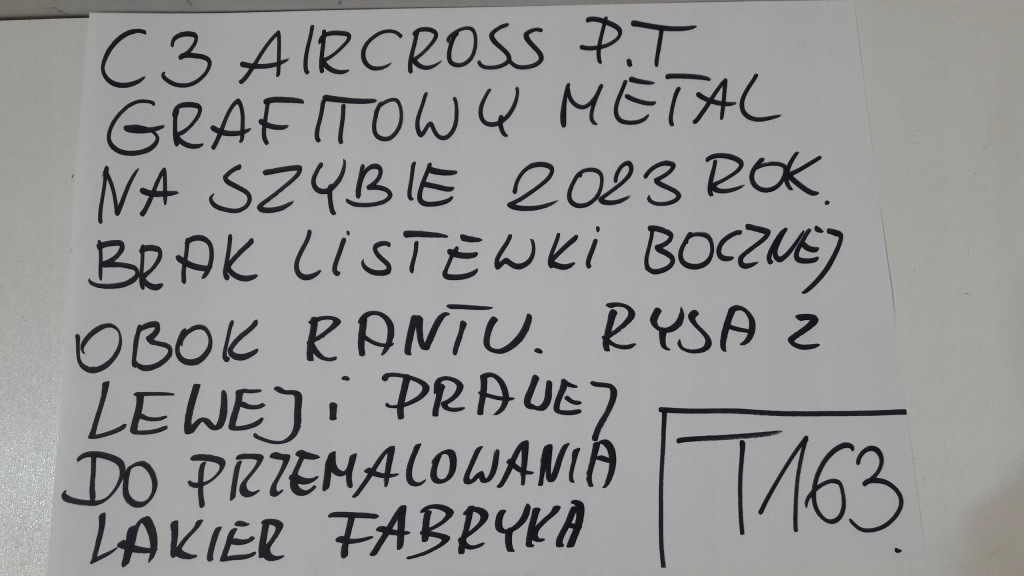 C3 AIRCROSS P.T
GRAFITOWY METAL
NA SZYBIE 2023 ROK.
BRAK LiSTEWKi BOCZNEJ
OBOK RANTU. RYSA Z
LEWEJ i PRAWEJ
DO PRZEMALOWANIA
LAKIER FABRYKA
T163.